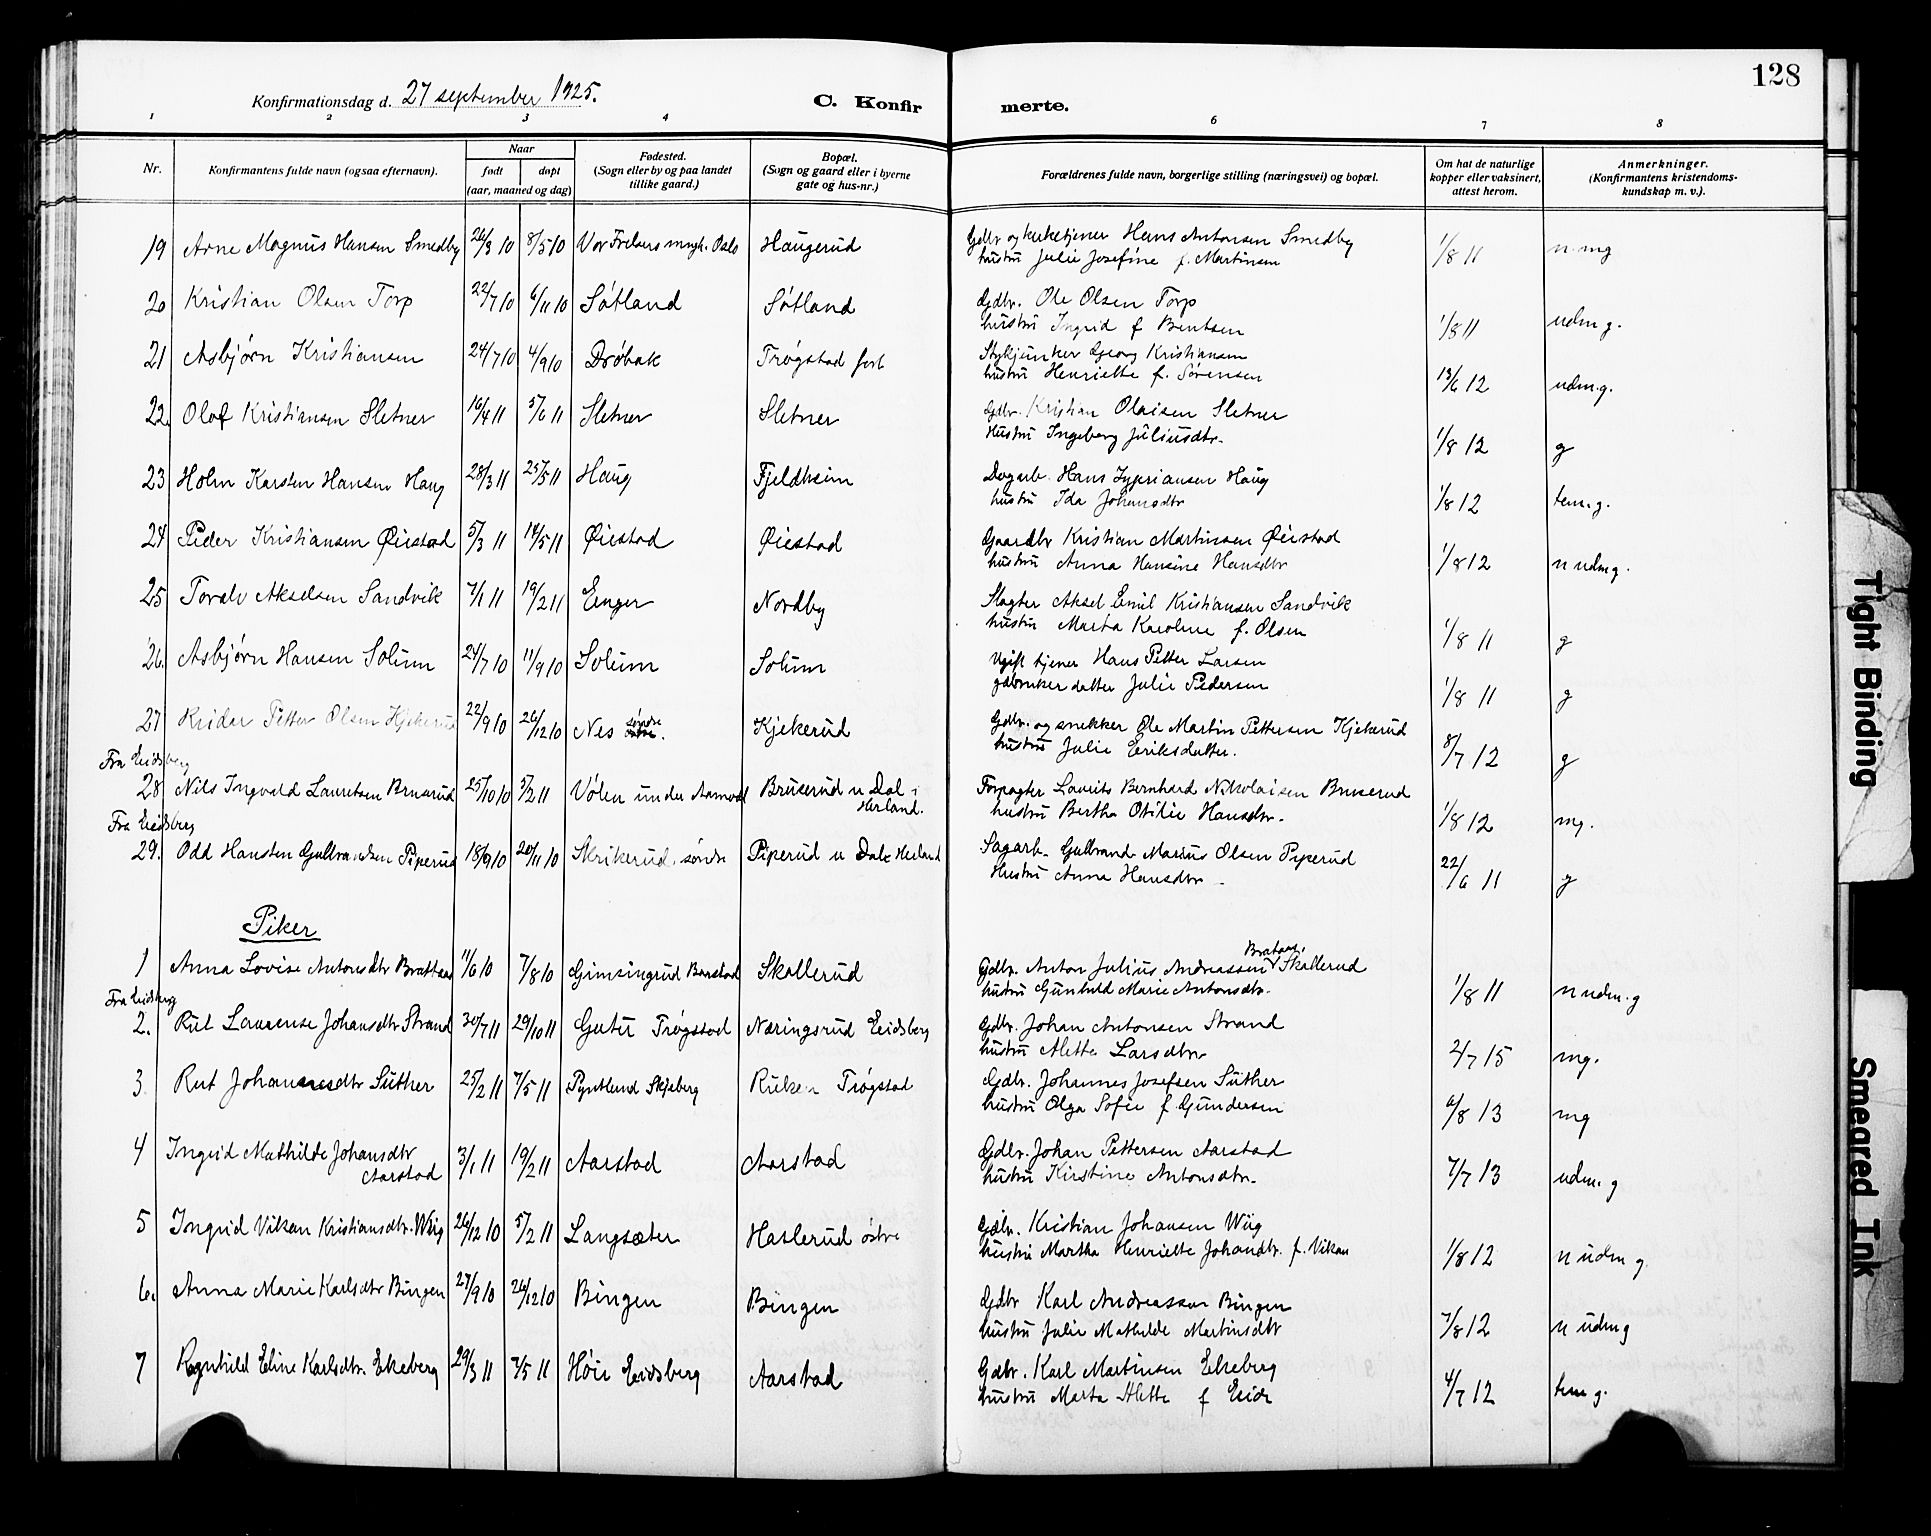 128
Konfirmationsdag d. 27 september 1925.
C. Konfirmerte.
1 2 3 4 5 6 7 8
Nr.
Konfirmantens fulde navn (ogsaa efternavn).
Naar
født døpt
(aar, maaned og dag)
Fødested.
(Sogn eller by og paa landet
tillike gaard.)
Bopæl.
(Sogn og gaard eller i byerne
gate og hus-nr.)
Forældrenes fulde navn, borgerlige stilling (næringsvei) og bopæl.
Om hat de naturlige
kopper eller vaksinert,
attest herom.
Anmerkninger.
(Konfirmantens kristendoms-
kundskap m. v.).
19 Arne Magnus Hansen Smedby 26/3 10 8/5 10 Vor Frelsers mngh. Oslo Haugerud Gdbr og kirketjener Hans Antonsen Smedby 1/8 11 n. mg
hustru Julie Josefine f. Martinsen
20 Kristian Olsen Torp 22/7 10 6/11 10 Søtland Søtland Gdbr. Ole Olsen Torp 1/8 11 udm g.
hustru Ingrid f Bentsen
21 Asbjørn Kristiansen 24/7 10 4/9 10 Drøbak Trøgstad fort Stykjunker Georg Kristiansen 13/6 12 udm.g.
hustru Henriette f. Sørensen
22. Olaf Kristiansen Sletner 16/4 11 5/6 11 Sletner Sletner Gdbr. Kristian Olaisen Sletner 1/8 12 g
Hustru Ingeborg Juliusdtr.
23 Holm Karsten Hansen Haug 28/3 11 25/5 11 Haug Fjeldheim Dagarb. Hans Sypriansen Haug 1/8 12 tem. g.
hustru Ida Johansdtr
24 Peder Kristiansen Øiestad 5/3 11 14/5 11 Øiestad Øiestad Gaardbr Kristian Martinsen Øiestad 1/8 12 n udm g.
hustru Anna Hansine Hansdtr
25 Toralv Akselsen Sandvik 7/1 11 19/2 11 Enger Nordby Slagter Aksel Emil Kristiansen Sandvik 1/8 11 g
hustru Marta Karoline f. Olsen
26. Asbjørn Hansen Solum 24/7 10 11/9 10 Solum Solum Ugift tjener Hans Petter Larsen 1/8 11 g
gdbruker datter Julie Pedersen
27 Reidar Petter Olsen Kjekerud 22/9 10 26/12 10 Nes søndre. Kjekerud Gdbr. og snekker Ole Martin Pettersen Kjekerud 8/7 12 g
hustru Julie Eriksdatter.
Fra Eidsberg
28 Nils Ingvald Lauritsen Bruserud 25/10 10 5/2 11 Vølen under Aamodt Bruserud u Dal i Herland. Forpagter Laurits Bernhard Nikolaisen Bruserud 1/8 12 mg.
hustru Bertha Otilie Hansdtr.
Fra Eidsberg
29. Odd Hansten Gulbrandsen Piperud 18/9 10 20/11 10 Skrikerud, søndre Piperud u Dale Herland Sagarb. Gulbrand Marius Olsen Pyperud 22/6 11 g
Hustru Anna Hansdtr.
Piker
1 Anna Lovise Antonsdtr Brattaas 11/6 10 7/8 10 Gimsingrud Baastad Skallerud Gdbr. Anton Julius Andreassen Brataas, Skallerud 1/8 11 n udm. g
hustru Gunhild Marie Antonsdtr.
Fra Eidsberg
2. Rut Laurense Johansdtr Strand 30/7 11 29/10 11 Gutu Trøgstad Næringsrud Eidsberg Gdbr. Johan Antonsen Strand 2/7 15 mg.
hustru Alette Larsdtr
3. Rut Johannesdtr Suther 25/2 11 7/5 11 Pyntlund Skjeberg Ruken Trøgstad Gdbr. Johannes Josefsen Suther 6/8 13 mg
hustru Olga Sofie f. Gundersen
4 Ingrid Mathilde Johansdtr Aarstad 3/1 11 19/2 11 Aarstad Aarstad Gdbr. Johan Pettersen Aarstad 7/7 13 udm. g
hustru Kirstine Antonsdtr.
5 Ingrid Vikan Kristiansdtr. Wiig 26/12 10 5/2 11 Langsæter Haslerud østre Gdbr. Kristian Johansen Wiig 1/8 12 n udm g.
hustru Martha Henriette Johandtr. f. Vikan
6. Anna Marie Karlsdtr Bingen 27/9 10 26/12 10 Bingen Bingen Gdbr Karl Andreassen Bingen 7/8 12 n udm g
hustru Julie Mathilde Martinsdtr
7 Ragnhild Eline Karlsdtr. Ekeberg 29/3 11 7/5 11 Høie Eidsberg Aarstad Gdbr. Karl Martinsen Ekeberg 4/7 12 tem g.
hustru Marta Alette f Eide
Tight Binding
Smeared Ink